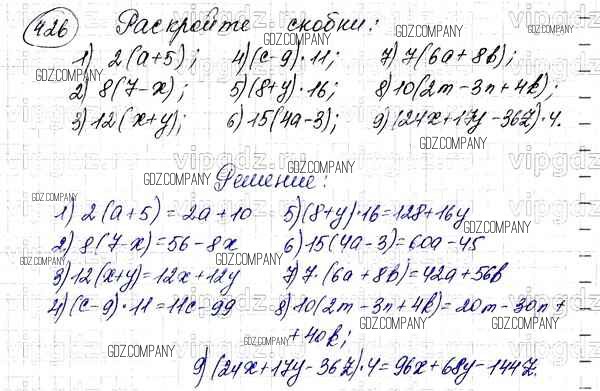 426 Раскройте скобки:
1) 2(a+5); 4)(c-9)·11; 7) 7(6a+8b);
2) 8(7-x); 5)(8+y)·16; 8)10(2m-3n+4k);
3)12(x+y); 6)15(4a-3); 9)(24x+17y-36z)·4.
Решение:
1) 2(a+5)=2a+10 5)(8+y)·16=128+16y
2) 8(7-x)=56-8x 6)15(4a-3)=60a-45
3)12(x+y)=12x+12y 7)7·(6a+8b)=42a+56b
4)(c-9)·11=11c-99 8)10(2m-3n+4k)=20m-30n+
+40k;
9)(24x+17y-36z)·4=96x+68y-144z.
GDZ.COMPANY
vipgdz.ru